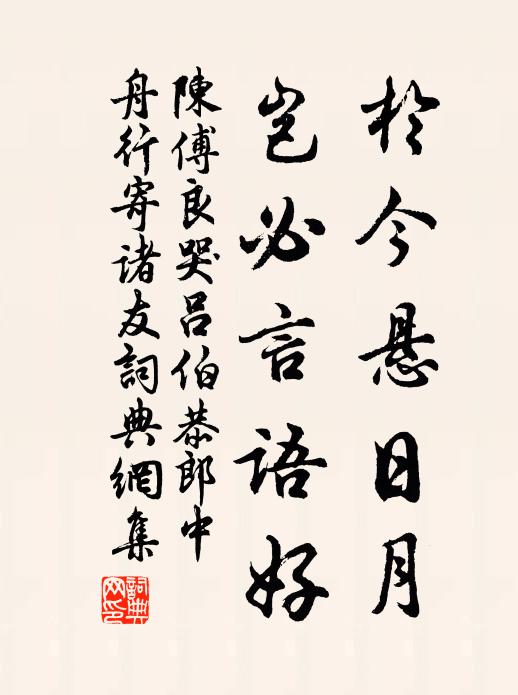 於今悬日月
岂必言語好
陳傅良哭吕伯恭郎中
舟行寄诸友詞典網集
詞典網印